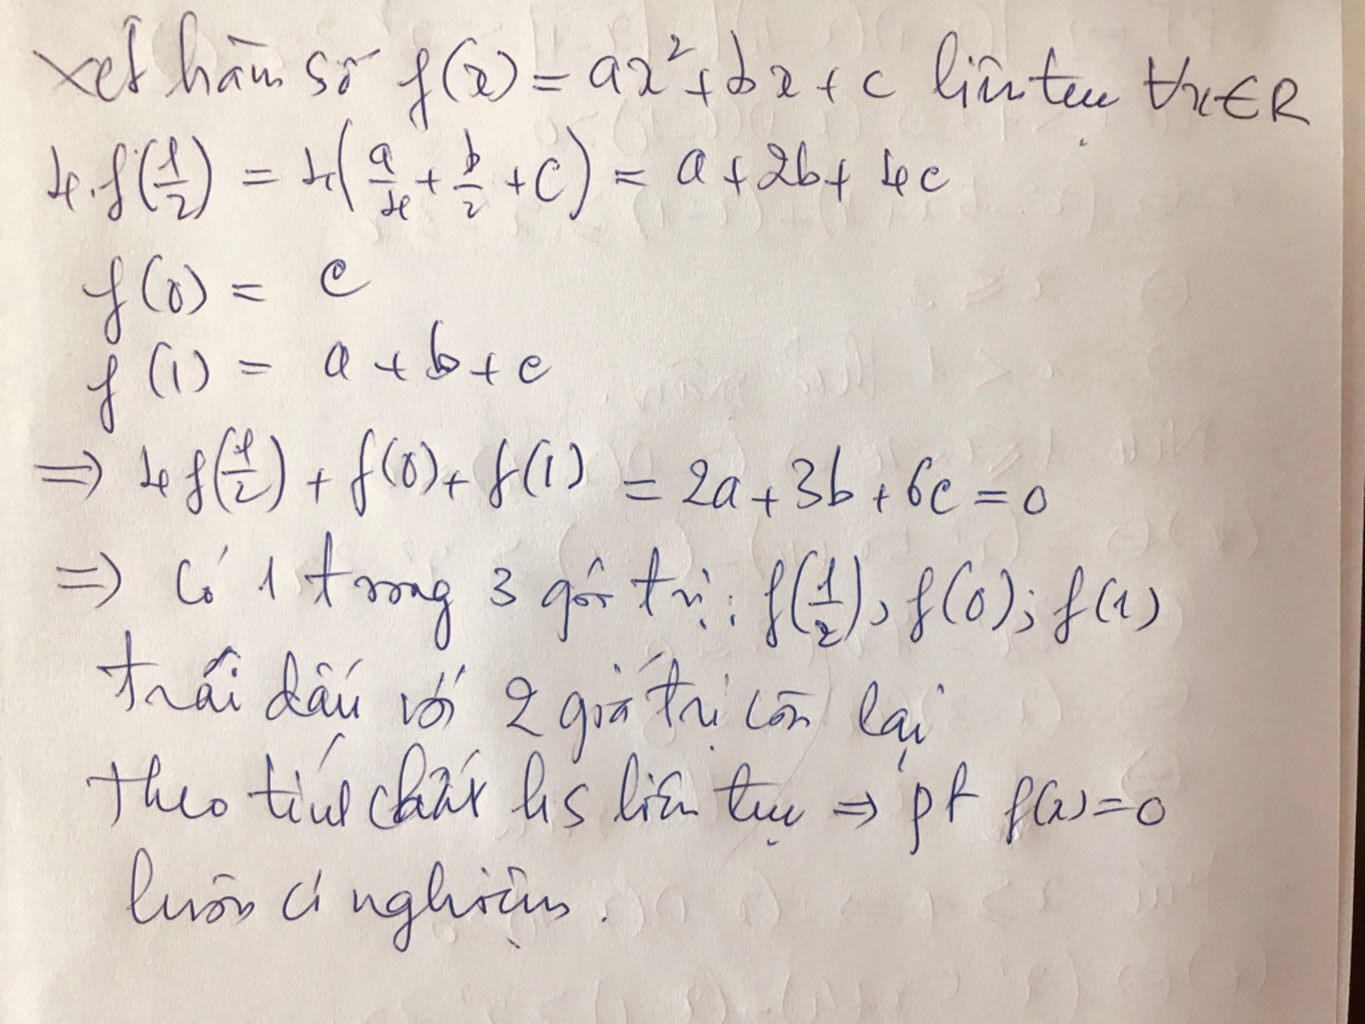 Xét hàm số f(x) = ax² + bx + c liên tục ∀x∈R
4.f(1/2) = 4(a/4 + b/2 + c) = a + 2b + 4c
f(0) = c
f(1) = a + b + c
⇒ 4f(1/2) + f(0) + f(1) = 2a + 3b + 6c = 0
⇒ Có 1 trong 3 giá trị: f(1/2); f(0); f(1)
trái dấu với 2 giá trị còn lại
Theo tính chất hs liên tục ⇒ pt f(x) = 0
luôn có nghiệm.